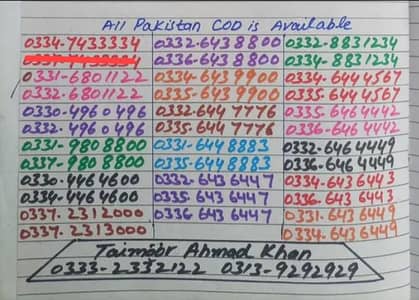 All Pakistan COD is Available
0334-7433334
0331-6801122
0332-6801122
0330-4960496
0332-4960496
0331-9808800
0337-9808800
0330-4464600
0334-4464600
0337-2312000
0337-2313000
0332-6438800
0336-6438800
0334-6439900
0335-6439900
0332-6447776
0335-6447776
0331-6448883
0335-6448883
0332-6436447
0335-6436447
0336 6436447
0332-8831234
0334-8831234
0334-6444567
0335-6444567
0335-6464442
0336-6464442
0332-6464449
0336-6464449
0334-6436443
0336-6436443
0331-6436449
0334-6436449
Taimoor Ahmad Khan
0333-2332122 0313-9292929